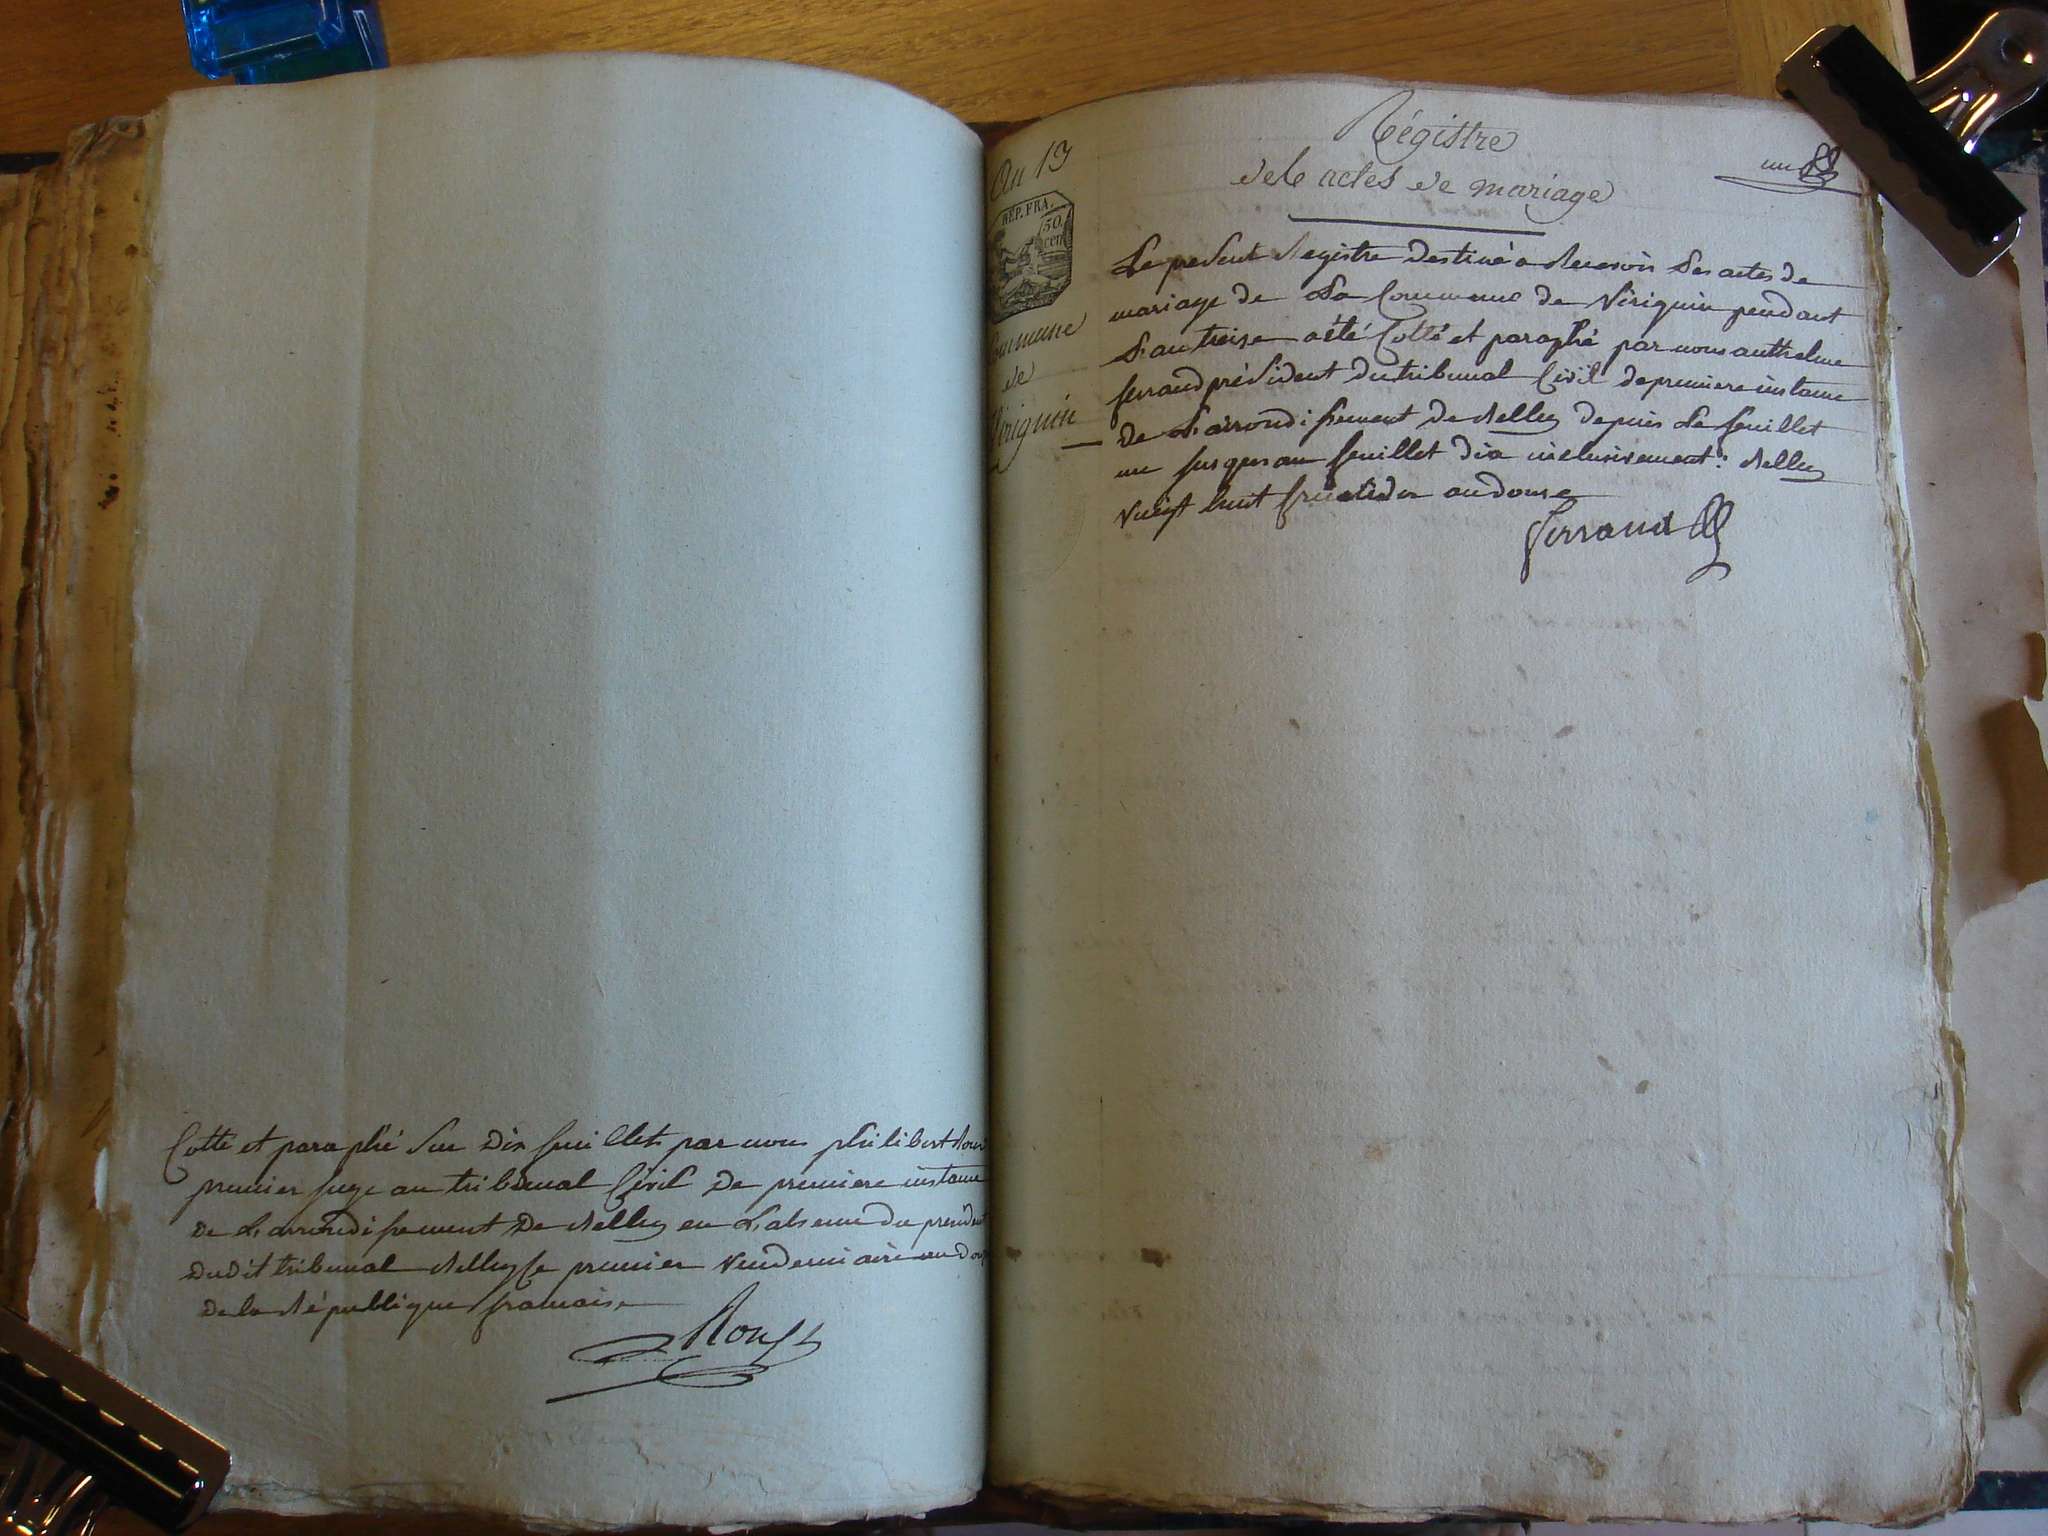 Cotté et paraphé sur dix feuillets par nous philibert Roux
premier juge au tribunal Civil de premiere instance
de L'arrondissement de Belley en L'absence du président
dudit tribunal Belley le premier vendemiaire an douze
de la République francaise
An 13
REP. FRA.
50
cen
Commune
de
Virignin
Régistre
des actes de mariage
un
Le present Registre destiné a Recevoir Les actes de
mariage de La Commune de Virignin pendant
L'an treize a été Cotté et paraphé par nous anthelme
ferrand président du tribunal Civil de premiere instance
de L'arrondissement de Belley depuis Le feuillet
un jusques au feuillet dix inclusivement : Belley
vingt huit fructidor an douze
Ferrand